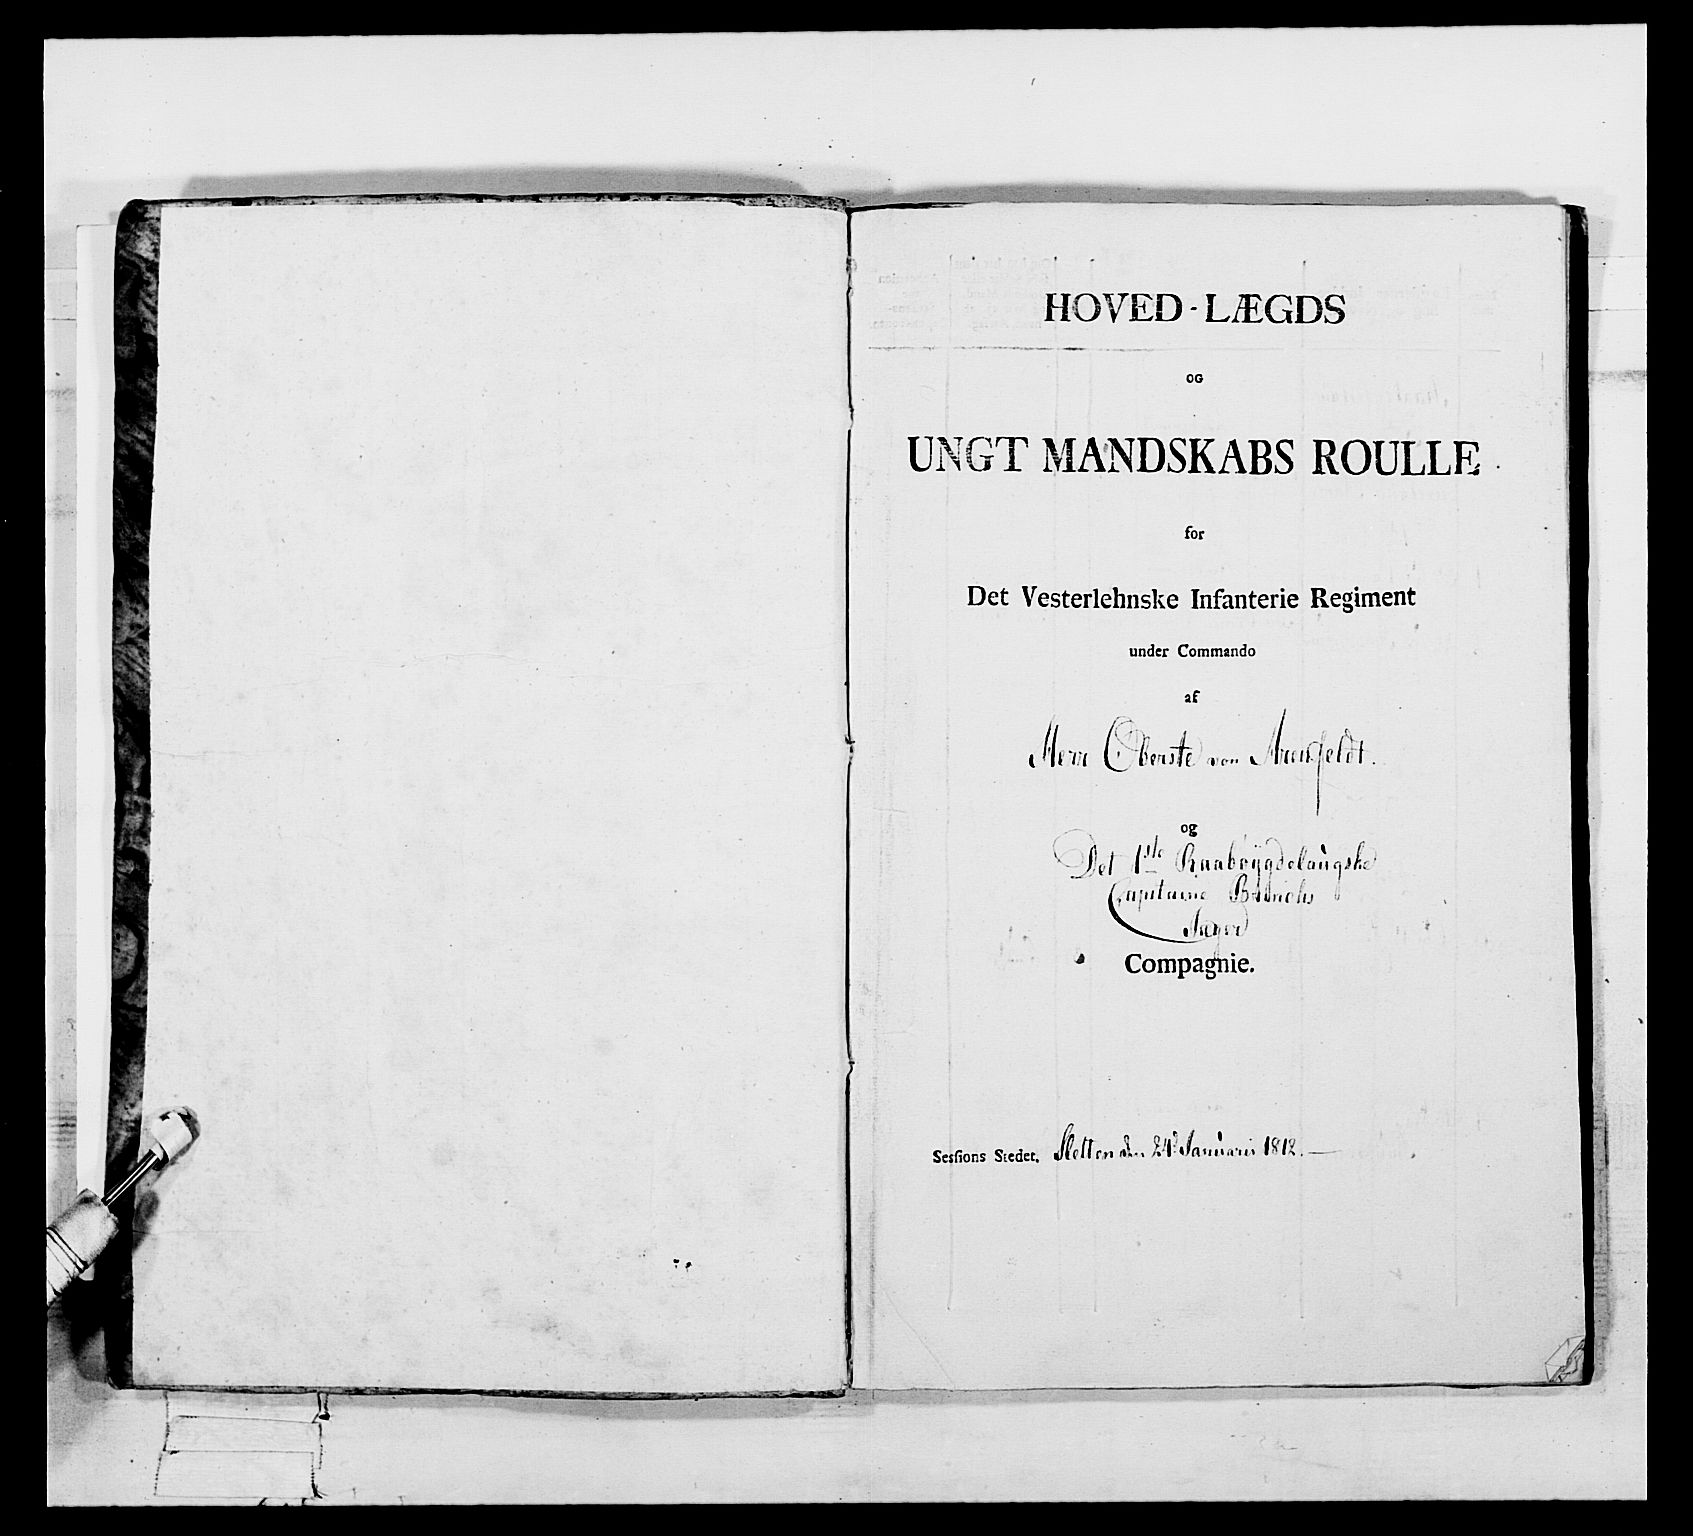 HOVED - LÆGDS
OG
UNGT MANDSKABS ROULLE
for
Det Vesterlehnske Infanterie Regiment
under Commando
af
Herr Oberste von Arensfeldt.
og
Det 1ste Raabÿgdelaugske
Capitaine
Jæger
Compagnie.
Sessions Stedet. Sletten den 24d Januarii 1812. —